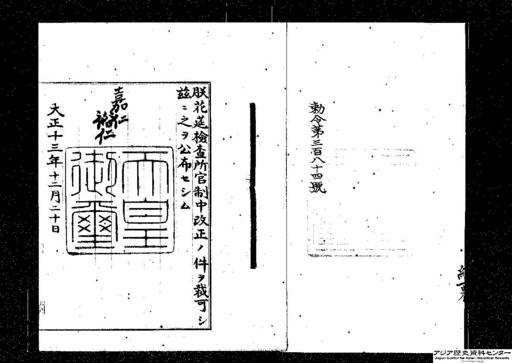 勅令第三百八十四號
朕花莚檢査所官制中改正ノ件ヲ裁可シ
玆ニ之ヲ公布セシム
嘉仁
裕仁
天皇
御璽
大正十三年十二月二十日
アジア歴史資料センター
Japan Center for Asian Historical Records